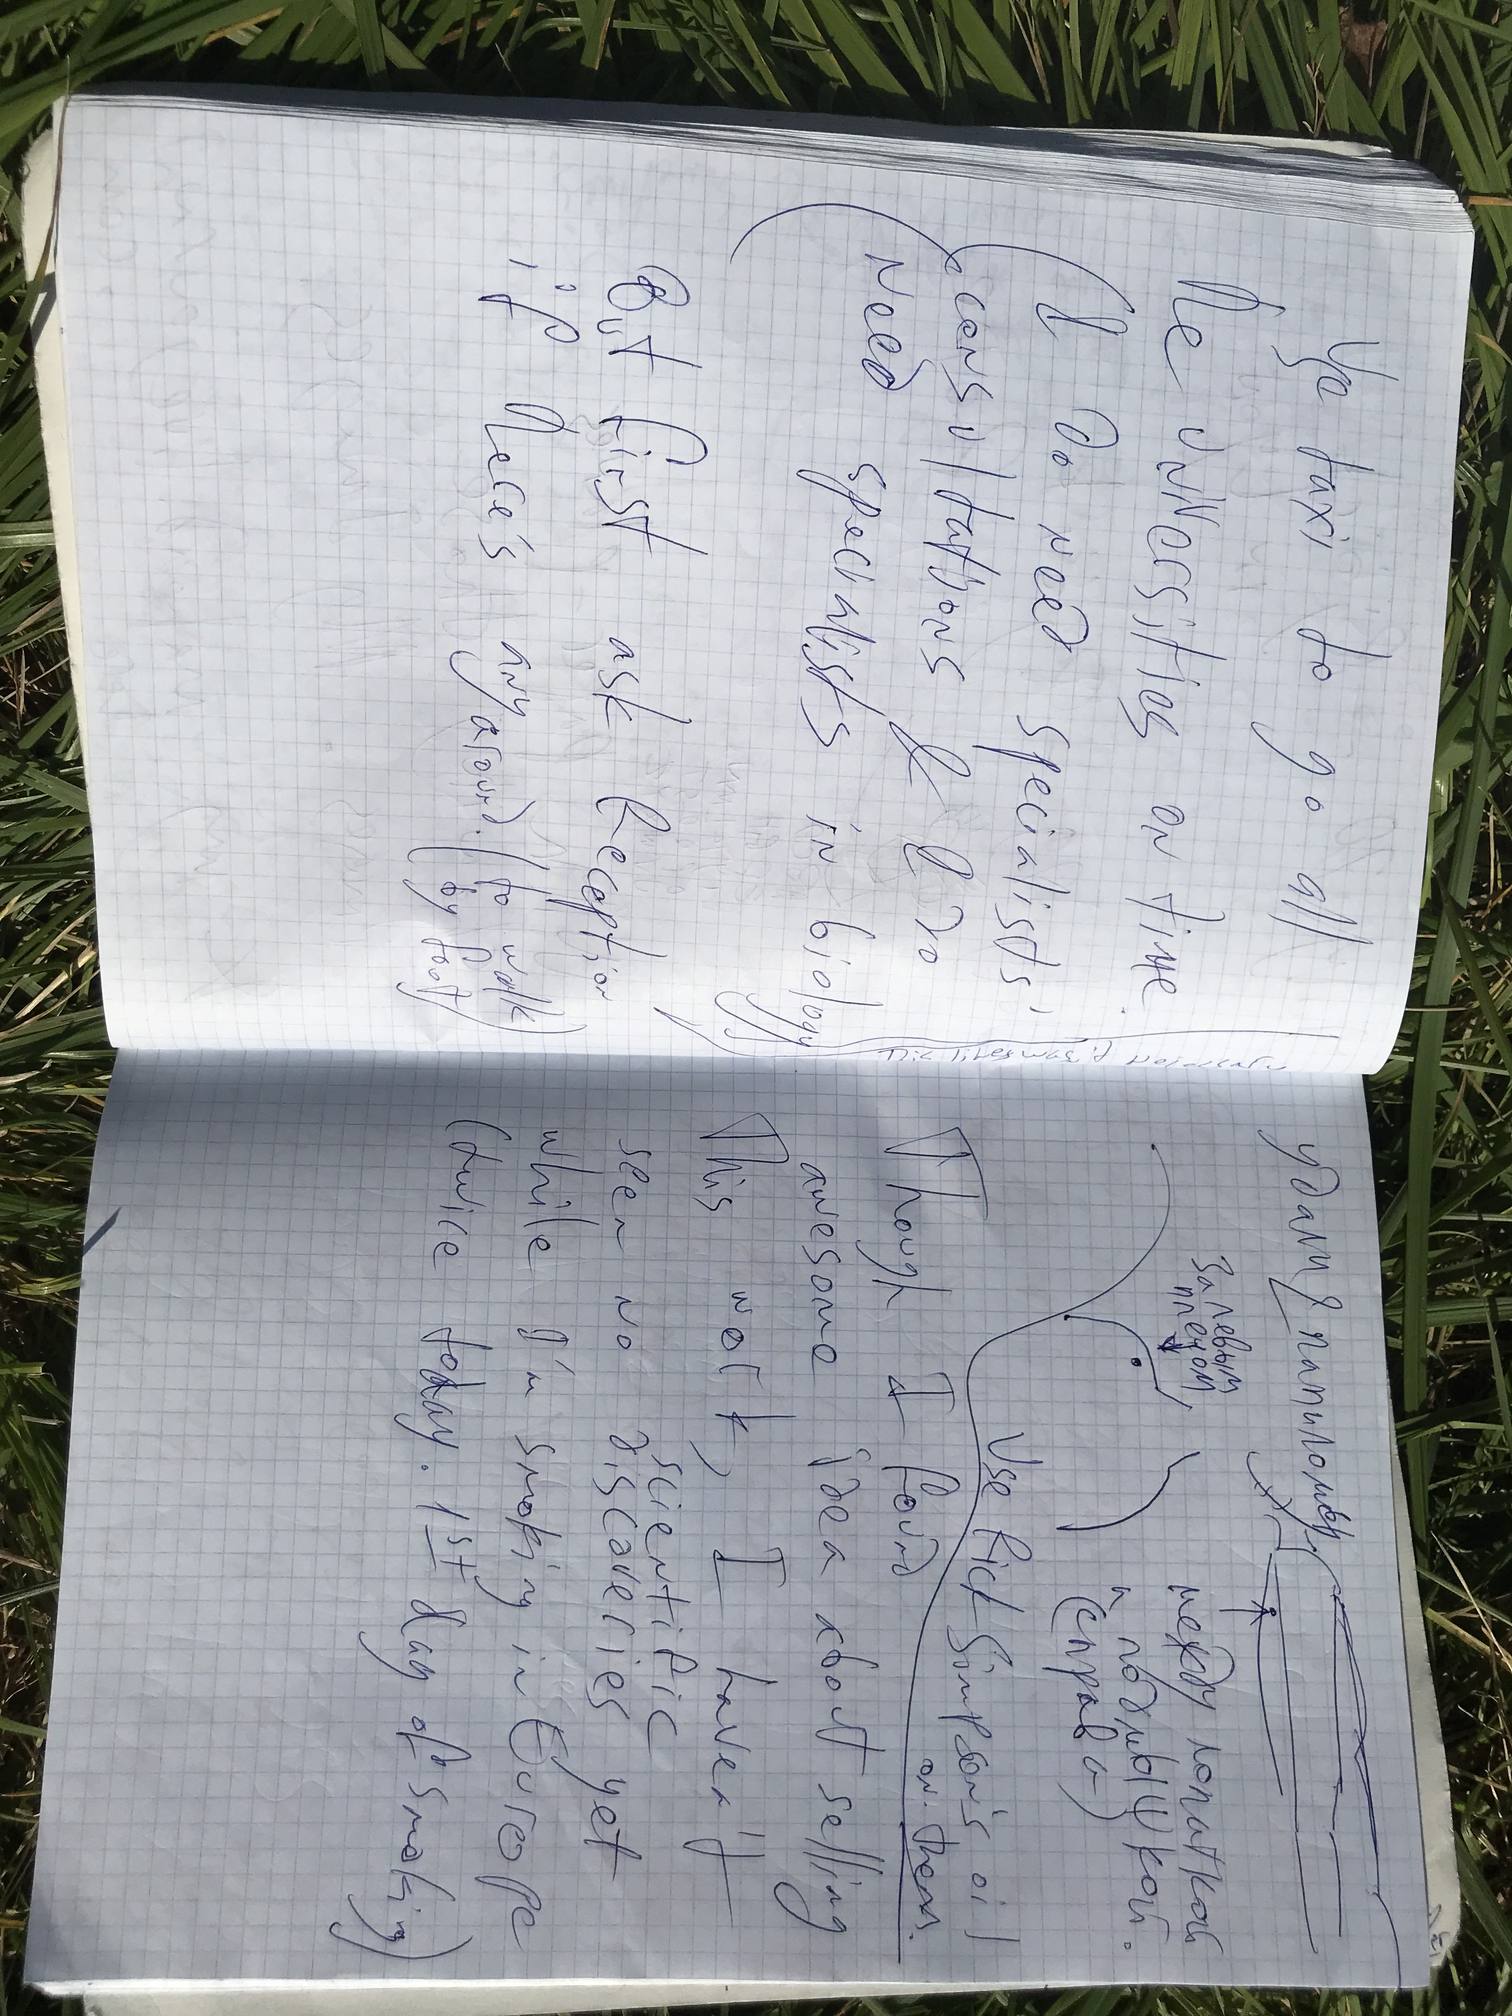 Ya taxi to go all
the universities on time.
I do need specialists'
consultations & I do
need specialists in biology
But first ask Reception
if there's any around. (to walk
by foot)
удали папиллому
За левым
плечом
между лопаткой
и подмышкой.
(справа)
Use Rick Simpson's oil
on them.
Though I found
awesome idea about selling
This work, I haven't
seen no scientific discoveries yet
while I'm smoking in Europe
(twice today. 1st day of smoking)